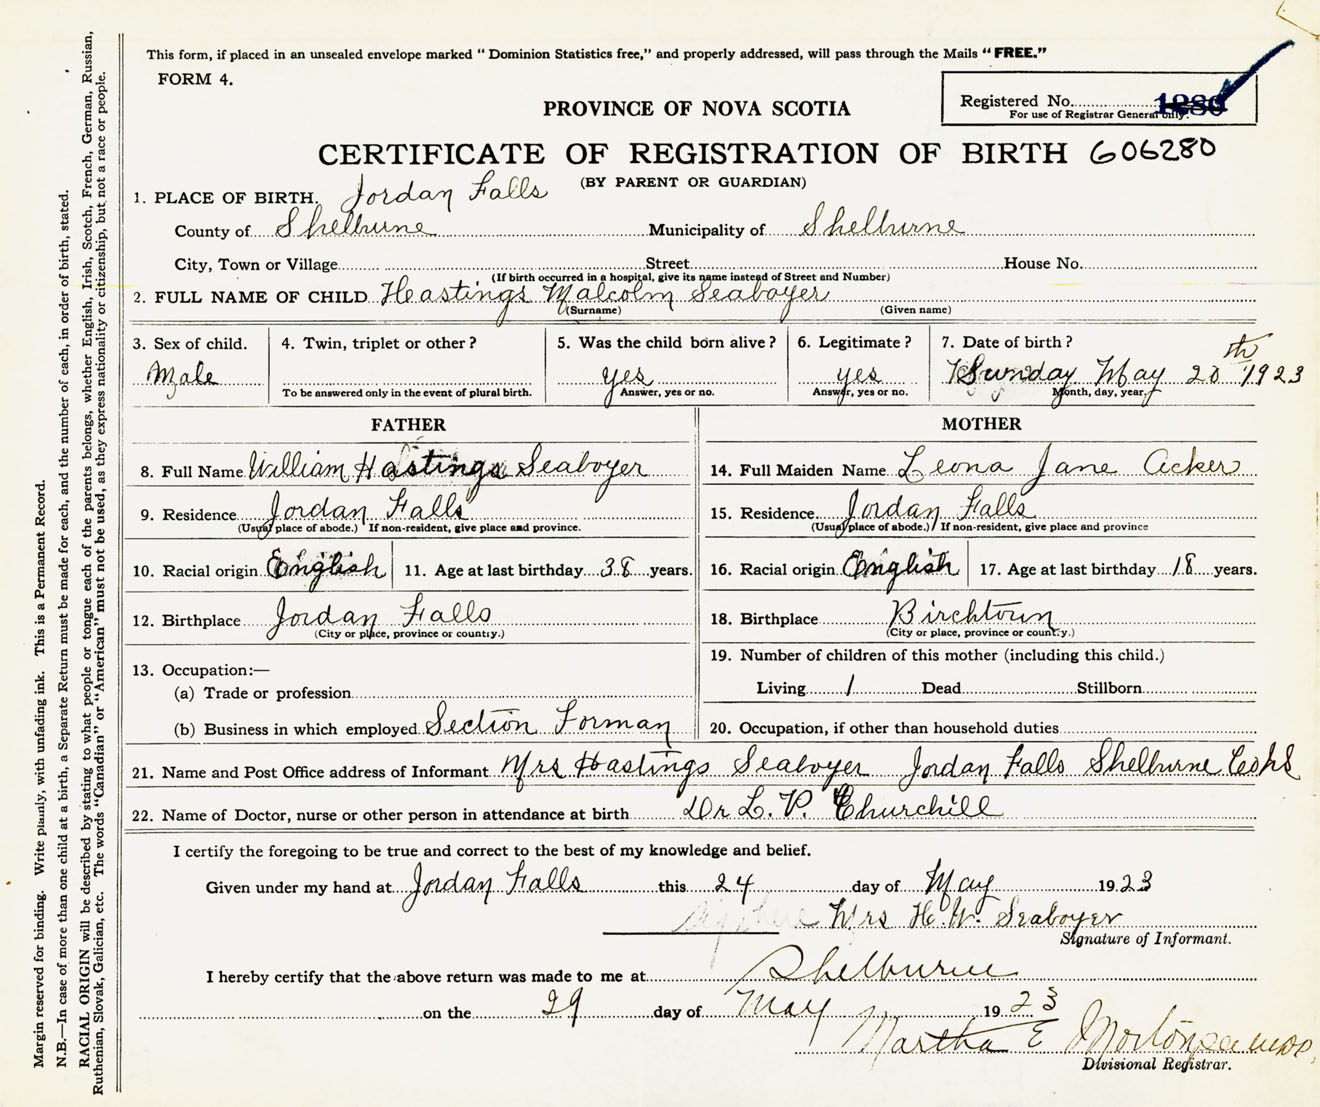 This form, if placed in an unsealed envelope marked "Dominion Statistics free," and properly addressed, will pass through the Mails "FREE."
FORM 4.
Registered No. 1280
For use of Registrar General only.
PROVINCE OF NOVA SCOTIA
CERTIFICATE OF REGISTRATION OF BIRTH 606280
(BY PARENT OR GUARDIAN)
1. PLACE OF BIRTH. Jordan Falls
County of Shelburne Municipality of Shelburne
City, Town or Village Street House No.
(If birth occurred in a hospital, give its name instead of Street and Number)
2. FULL NAME OF CHILD Hastings Malcolm Seaboyer
(Surname) (Given name)
3. Sex of child. 4. Twin, triplet or other? 5. Was the child born alive? 6. Legitimate? 7. Date of birth?
Male yes yes Sunday May 20th 1923
To be answered only in the event of plural birth. Answer, yes or no. Answer, yes or no. Month, day, year.
FATHER MOTHER
8. Full Name William Hastings Seaboyer 14. Full Maiden Name Leona Jane Acker
9. Residence Jordan Falls 15. Residence Jordan Falls
(Usual place of abode.) If non-resident, give place and province. (Usual place of abode.) If non-resident, give place and province
10. Racial origin English 11. Age at last birthday 38 years. 16. Racial origin English 17. Age at last birthday 18 years.
12. Birthplace Jordan Falls 18. Birthplace Birchtown
(City or place, province or country.) (City or place, province or country.)
13. Occupation:— 19. Number of children of this mother (including this child.)
(a) Trade or profession Living 1 Dead Stillborn
(b) Business in which employed Section Forman 20. Occupation, if other than household duties
21. Name and Post Office address of Informant Mrs Hastings Seaboyer Jordan Falls Shelburne Co NS
22. Name of Doctor, nurse or other person in attendance at birth Dr L. P. Churchill
I certify the foregoing to be true and correct to the best of my knowledge and belief.
Given under my hand at Jordan Falls this 24 day of May 1923
Mrs H. W. Seaboyer
Signature of Informant.
I hereby certify that the above return was made to me at Shelburne
on the 29 day of May 1923
Martha E Morton
Divisional Registrar.
Margin reserved for binding. Write plainly, with unfading ink. This is a Permanent Record.
N.B.—In case of more than one child at a birth, a Separate Return must be made for each, and the number of each, in order of birth, stated.
RACIAL ORIGIN will be described by stating to what people or tongue each of the parents belongs, whether English, Irish, Scotch, French, German, Russian,
Ruthenian, Slovak, Galician, etc. The words "Canadian" or "American" must not be used, as they express nationality or citizenship, but not a race or people.